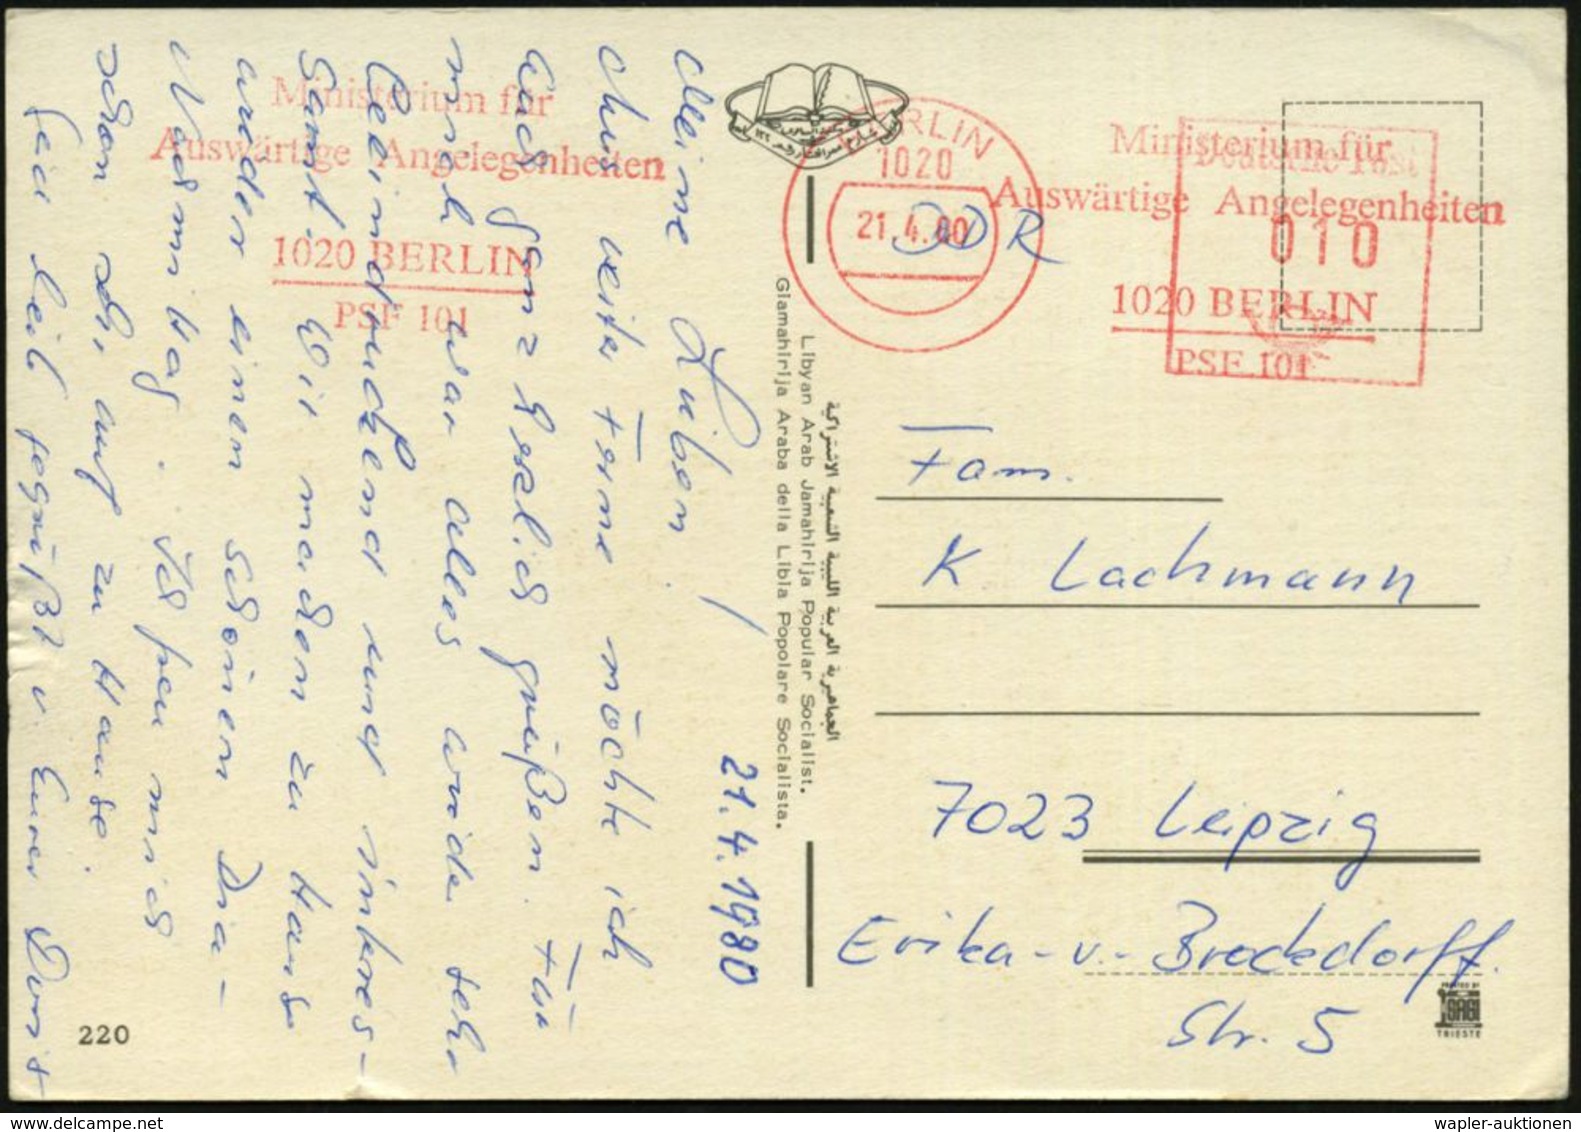 Meine Lieben!
Aus weiter Ferne möchte ich
Euch ganz herzlich grüßen. Für
mich war alles wieder sehr
beeindruckend und interes-
sant. Wir machen zu Hause
wieder einen schönen Dia-
Nachmittag. Ich freu mich
schon sehr auf zu Hause.
Seid lieb gegrüßt v. Eurer Doris
21.4.1980
220
Ministerium für
Auswärtige Angelegenheiten
1020 BERLIN
PSF 101
الجماهيرية العربية الليبية الشعبية الاشتراكية
Libyan Arab Jamahirija Popular Socialist.
Giamahirija Araba della Libia Popolare Socialista.
BERLIN
1020
21.4.80
DDR
Ministerium für
Auswärtige Angelegenheiten
1020 BERLIN
PSF 101
Deutsche Post
010
Fam.
K Lachmann
7023 Leipzig
Erika-v.-Brockdorff.
Str. 5
PRINTED BY
SAGI
TRIESTE
wapler-auktionen